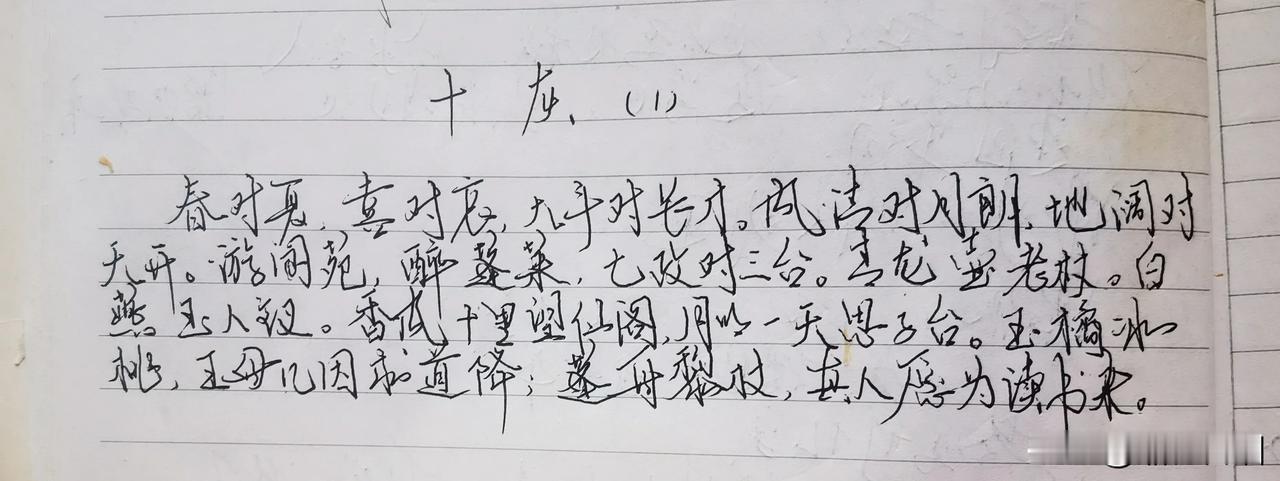 十灰(1)
春对夏,喜对哀,大手对长才。风清对月朗,地阔对
天开。游阆苑,醉蓬莱,七政对三台。青龙壶老杖。白
燕玉人钗。香风十里望仙阁,月明一天思子台。玉橘冰
桃,王母几因求道降;莲舟藜杖,真人原为读书来。